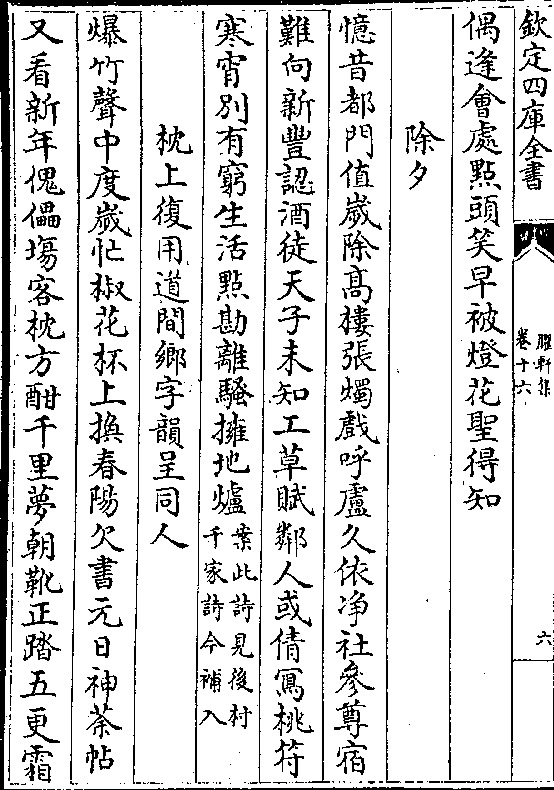 欽定四庫全書
臞軒集
卷十六
六
偶逢會處點頭笑早被燈花聖得知
除夕
憶昔都門值歲除高樓張燭戲呼盧久依净社參尊宿
難向新豐認酒徒天子未知工草賦鄰人或倩寫桃符
寒宵別有窮生活點勘離騷擁地爐
案此詩見後村
千家詩今補入
枕上復用道間鄉字韻呈同人
爆竹聲中度歲忙椒花杯上換春陽欠書元日神荼帖
又看新年傀儡塲客枕方酣千里夢朝靴正踏五更霜